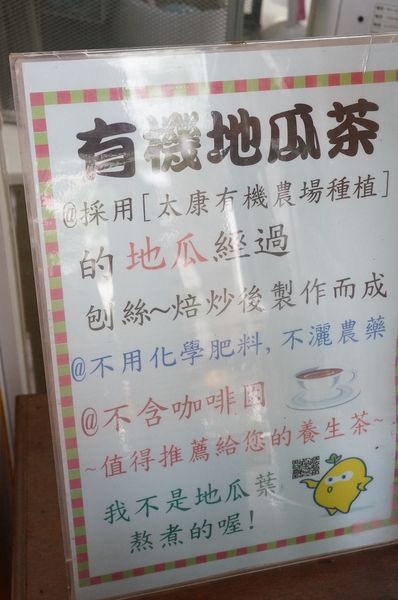 有機地瓜茶
@採用[太康有機農場種植]
的地瓜經過
刨絲~焙炒後製作而成
@不用化學肥料,不灑農藥
@不含咖啡因
~值得推薦給您的養生茶~
我不是地瓜葉
熬煮的喔!